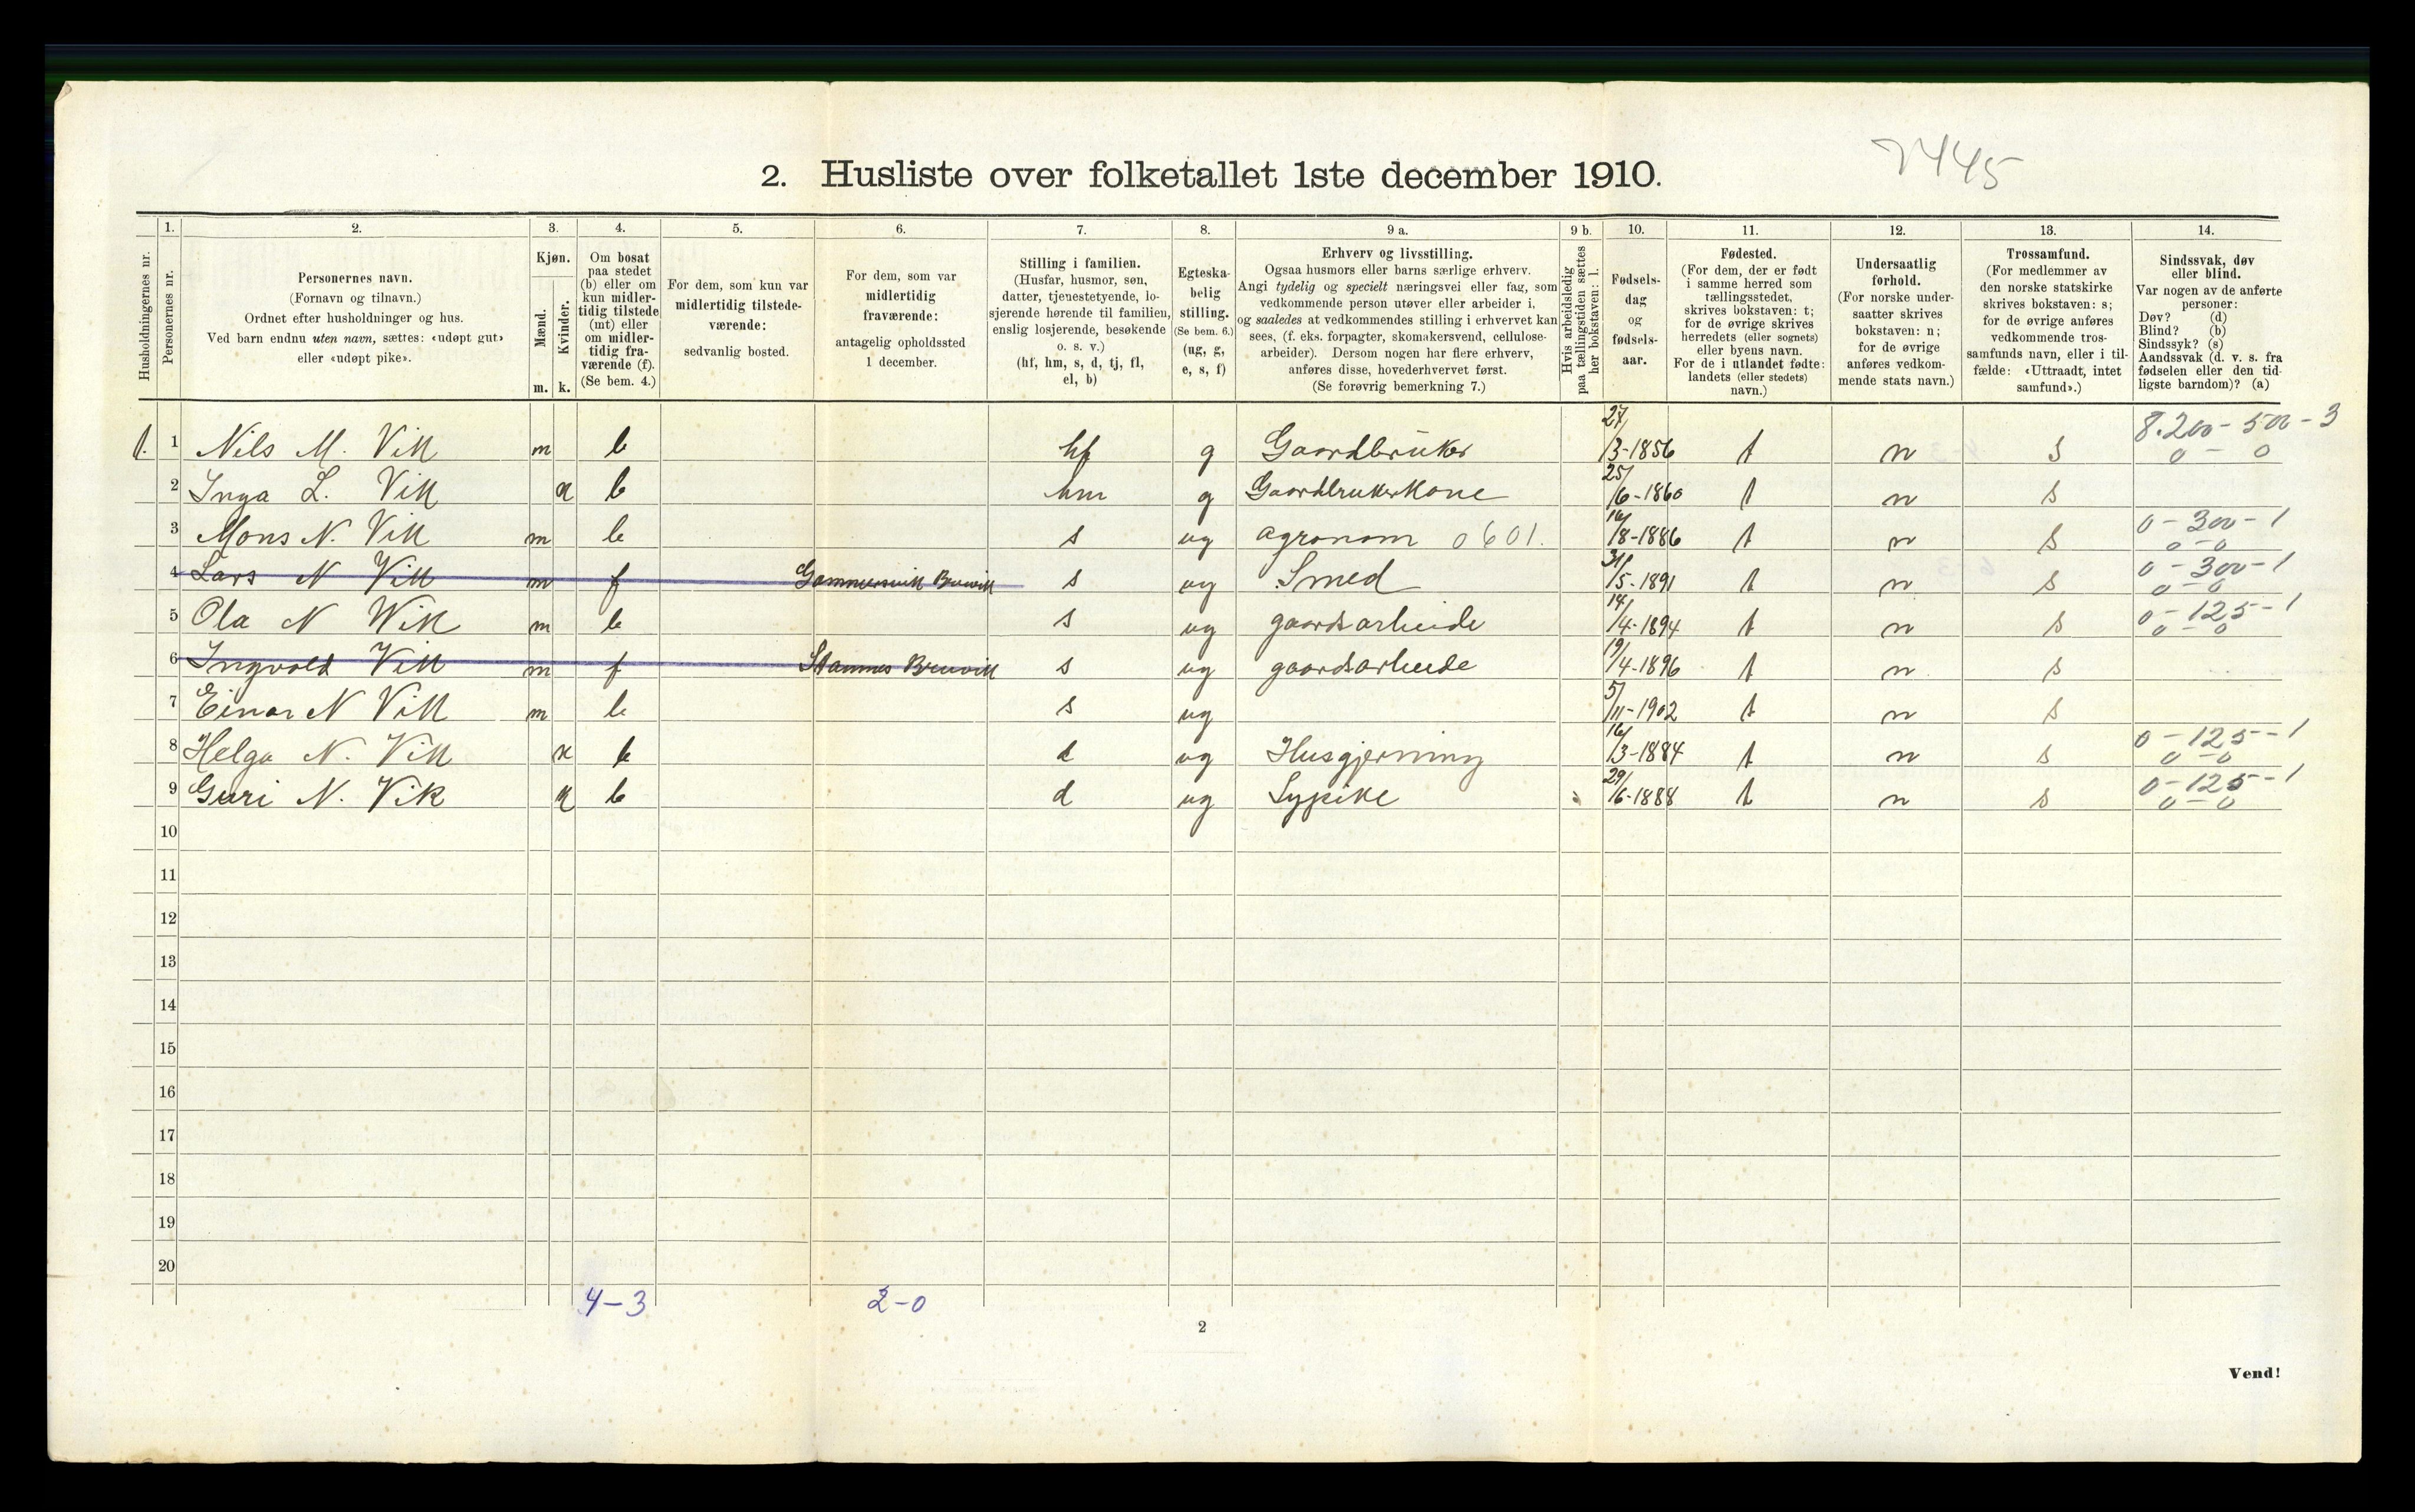 7445
2. Husliste over folketallet 1ste december 1910.
Husholdningernes nr.
1.
Personernes nr.
2.
Personernes navn.
(Fornavn og tilnavn.)
Ordnet efter husholdninger og hus.
Ved barn endnu uten navn, sættes: «udøpt gut»
eller «udøpt pike».
3.
Kjøn.
Mænd.
m.
Kvinder.
k.
4.
Om bosat
paa stedet
(b) eller om
kun midler-
tidig tilstede
(mt) eller
om midler-
tidig fra-
værende (f).
(Se bem. 4.)
5.
For dem, som kun var
midlertidig tilstede-
værende:
sedvanlig bosted.
6.
For dem, som var
midlertidig
fraværende:
antagelig opholdssted
1 december.
7.
Stilling i familien.
(Husfar, husmor, søn,
datter, tjenestetyende, lo-
sjerende hørende til familien,
enslig losjerende, besøkende
o. s. v.)
(hf, hm, s, d, tj, fl,
el, b)
8.
Egteska-
belig
stilling.
(Se bem. 6.)
(ug, g,
e, s, f)
9 a.
Erhverv og livsstilling.
Ogsaa husmors eller barns særlige erhverv.
Angi tydelig og specielt næringsvei eller fag, som
vedkommende person utøver eller arbeider i,
og saaledes at vedkommendes stilling i erhvervet kan
sees, (f. eks. forpagter, skomakersvend, cellulose-
arbeider). Dersom nogen har flere erhverv,
anføres disse, hovederhvervet først.
(Se forøvrig bemerkning 7.)
9 b.
Hvis arbeidsledig
paa tællingstiden sættes
her bokstaven: l.
10.
Fødsels-
dag
og
fødsels-
aar.
11.
Fødested.
(For dem, der er født
i samme herred som
tællingsstedet,
skrives bokstaven: t;
for de øvrige skrives
herredets (eller sognets)
eller byens navn.
For de i utlandet fødte:
landets (eller stedets)
navn.)
12.
Undersaatlig
forhold.
(For norske under-
saatter skrives
bokstaven: n;
for de øvrige
anføres vedkom-
mende stats navn.)
13.
Trossamfund.
(For medlemmer av
den norske statskirke
skrives bokstaven: s;
for de øvrige anføres
vedkommende tros-
samfunds navn, eller i til-
fælde: «Uttraadt, intet
samfund».)
14.
Sindssvak, døv
eller blind.
Var nogen av de anførte
personer:
Døv? (d)
Blind? (b)
Sindssyk? (s)
Aandssvak (d. v. s. fra
fødselen eller den tid-
ligste barndom)? (a)
1. 1 Nils M. Vik m b hf g Gaardbruker 27/3-1856 t n s 8.200-500-3 0-0
2 Inga L. Vik k b hm g Gaardbrukerkone 25/6-1860 t n s
3 Mons N. Vik m b s ug agronom 0601. 16/8-1886 t n s 0-300-1 0-0
4 Lars N Vik m f Gammersvik Bruvik s ug Smed 31/5-1891 t n s 0-300-1 0-0
5 Ola N Wik m b s ug gaardsarbeide 14/4-1894 t n s 0-125-1 0-0
6 Ingvald Vik m f Stamnes Bruvik s ug gaardsarbeide 19/4-1896 t n s
7 Einar N Vik m b s ug 5/11-1902 t n s
8 Helga N. Vik k b d ug Husgjerning 16/3-1884 t n s 0-125-1 0-0
9 Guri N. Vik k b d ug Sypike 29/6-1888 t n s 0-125-1 0-0
10
11
12
13
14
15
16
17
18
19
20
4-3 2-0
2
Vend!